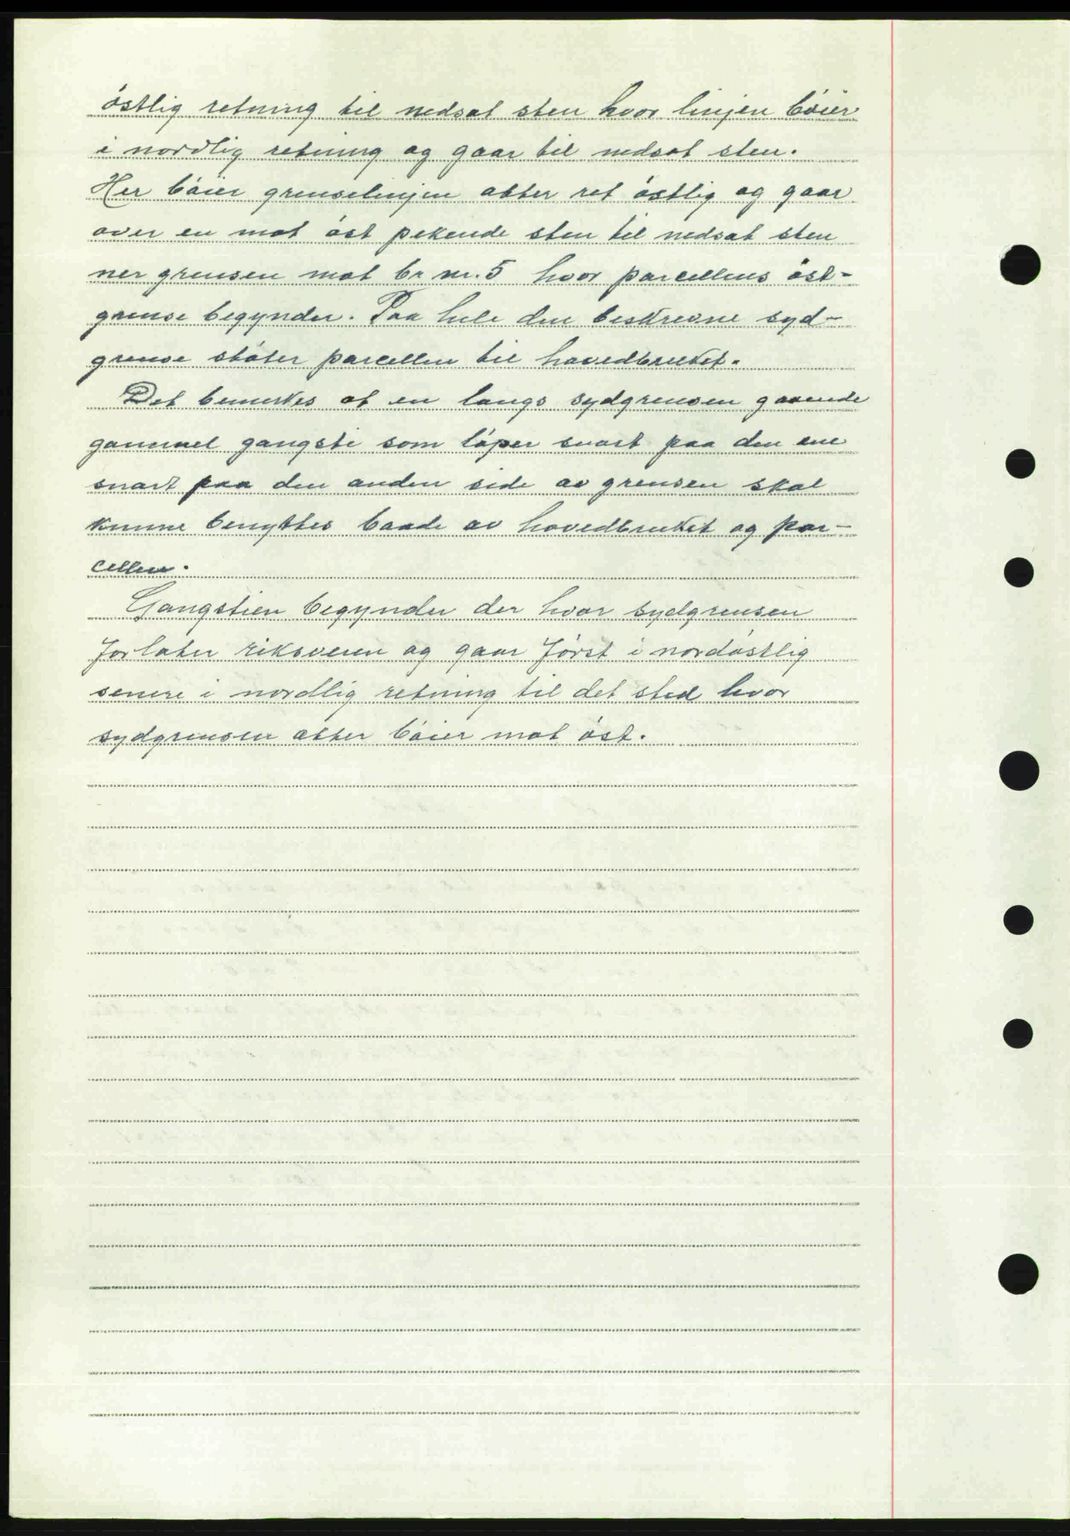 östlig retning til nedsat sten hvor linjen böier
i nordlig retning og gaar til nedsat sten.
Her böier grenselinjen atter ret östlig og gaar
over en mot öst pekende sten til nedsat sten
ner grensen mot br nr. 5 hvor parcellens öst-
grense begynder. Paa hele den beskrevne syd-
grense stöter parcellen til hovedbruket.
Det bemerkes at en langs sydgrensen gaaende
gammel gangsti som löper snart paa den ene
snart paa den anden side av grensen skal
kunne benyttes baade av hovedbruket og par-
cellen.
Gangstien begynder der hvor sydgrensen
forlater riksveien og gaar först i nordöstlig
senere i nordlig retning til det sted hvor
sydgrensen atter böier mot öst.